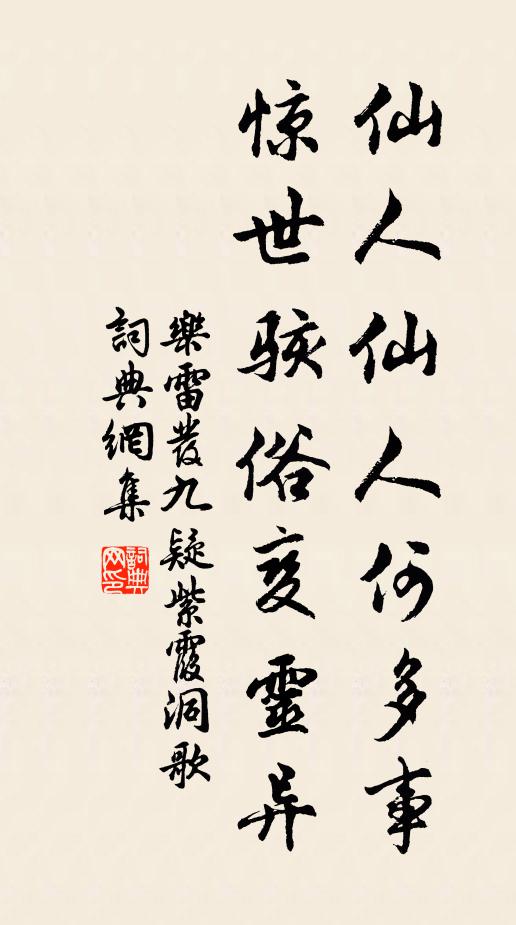 仙人仙人何多事
惊世骇俗变灵异
樂雷發九疑紫霞洞歌
詞典網集
詞典网印